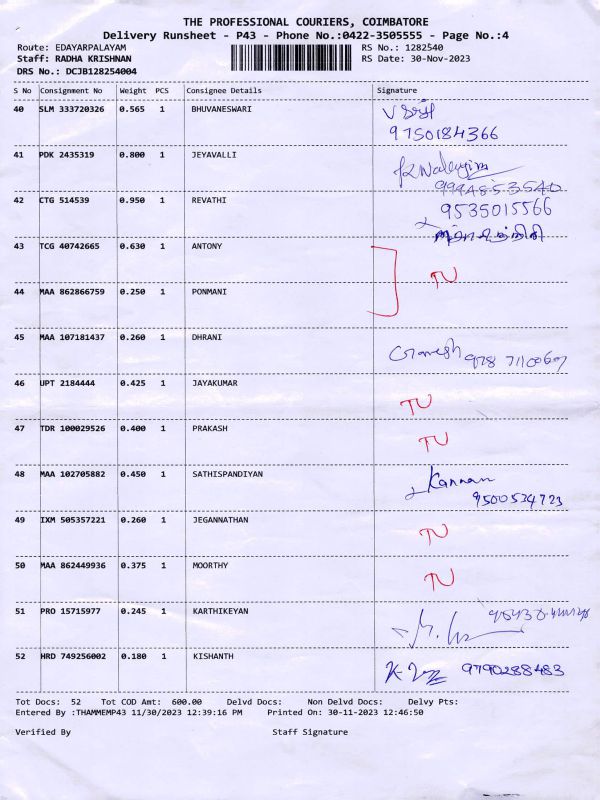 THE PROFESSIONAL COURIERS, COIMBATORE
Delivery Runsheet - P43 - Phone No.:0422-3505555 - Page No.:4
Route: EDAYARPALAYAM RS No.: 1282540
Staff: RADHA KRISHNAN RS Date: 30-Nov-2023
DRS No.: DCJB128254004
S No Consignment No Weight PCS Consignee Details Signature
40 SLM 333720326 0.565 1 BHUVANESWARI
9750184366
41 PDK 2435319 0.800 1 JEYAVALLI
9944853540
42 CTG 514539 0.950 1 REVATHI 9535015566
43 TCG 40742665 0.630 1 ANTONY
TU
44 MAA 862866759 0.250 1 PONMANI
45 MAA 107181437 0.260 1 DHRANI
46 UPT 2184444 0.425 1 JAYAKUMAR TU
47 TDR 100029526 0.400 1 PRAKASH TU
48 MAA 102705882 0.450 1 SATHISPANDIYAN Kannan
9500534723
49 IXM 505357221 0.260 1 JEGANNATHAN TU
50 MAA 862449936 0.375 1 MOORTHY TU
51 PRO 15715977 0.245 1 KARTHIKEYAN
52 HRD 749256002 0.180 1 KISHANTH 9790288483
Tot Docs: 52 Tot COD Amt: 600.00 Delvd Docs: Non Delvd Docs: Delvy Pts:
Entered By :THAMMEMP43 11/30/2023 12:39:16 PM Printed On: 30-11-2023 12:46:50
Verified By Staff Signature